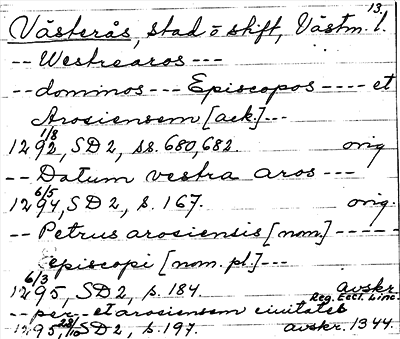 13.
Västerås, stad o stift, Västm. l.
-- Westrearos ---
-- dominos --- Episcopos ---- et
Arosiensem [ack.] ---
1/8
1292, SD 2, ss. 680, 682. orig
-- Datum vestra aros ----
6/5
1294, SD 2, s. 167. orig.
-- Petrus arosiensis [nom.] -----
episcopi [nom. pl.] ---
6/3
1295, SD 2, s. 184. avskr.
Reg. Eccl. Linc.
-- per -- et arosiensem ciuitates
1295, 23/10 SD 2, s. 197. avskr. 1344.